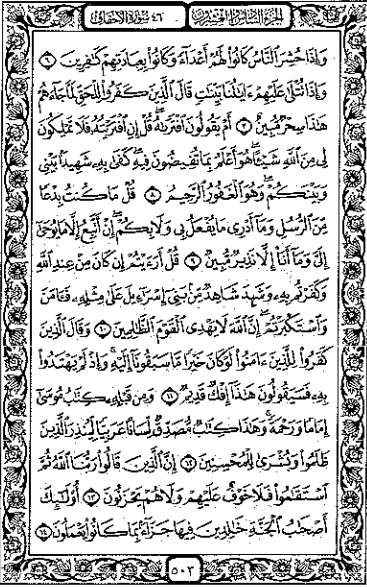 الجزء السادس والعشرون ٤٦ سورة الأحقاف
وَإِذَا حُشِرَ النَّاسُ كَانُوا لَهُمْ أَعْدَاءً وَكَانُوا بِعِبَادَتِهِمْ كَافِرِينَ ٦
وَإِذَا تُتْلَى عَلَيْهِمْ آيَاتُنَا بَيِّنَاتٍ قَالَ الَّذِينَ كَفَرُوا لِلْحَقِّ لَمَّا جَاءَهُمْ
هَذَا سِحْرٌ مُبِينٌ ٧ أَمْ يَقُولُونَ افْتَرَاهُ قُلْ إِنِ افْتَرَيْتُهُ فَلَا تَمْلِكُونَ
لِي مِنَ اللَّهِ شَيْئًا هُوَ أَعْلَمُ بِمَا تُفِيضُونَ فِيهِ كَفَى بِهِ شَهِيدًا بَيْنِي
وَبَيْنَكُمْ وَهُوَ الْغَفُورُ الرَّحِيمُ ٨ قُلْ مَا كُنْتُ بِدْعًا
مِنَ الرُّسُلِ وَمَا أَدْرِي مَا يُفْعَلُ بِي وَلَا بِكُمْ إِنْ أَتَّبِعُ إِلَّا مَا يُوحَى
إِلَيَّ وَمَا أَنَا إِلَّا نَذِيرٌ مُبِينٌ ٩ قُلْ أَرَأَيْتُمْ إِنْ كَانَ مِنْ عِنْدِ اللَّهِ
وَكَفَرْتُمْ بِهِ وَشَهِدَ شَاهِدٌ مِنْ بَنِي إِسْرَائِيلَ عَلَى مِثْلِهِ فَآمَنَ
وَاسْتَكْبَرْتُمْ إِنَّ اللَّهَ لَا يَهْدِي الْقَوْمَ الظَّالِمِينَ ١٠ وَقَالَ الَّذِينَ
كَفَرُوا لِلَّذِينَ آمَنُوا لَوْ كَانَ خَيْرًا مَا سَبَقُونَا إِلَيْهِ وَإِذْ لَمْ يَهْتَدُوا
بِهِ فَسَيَقُولُونَ هَذَا إِفْكٌ قَدِيمٌ ١١ وَمِنْ قَبْلِهِ كِتَابُ مُوسَى
إِمَامًا وَرَحْمَةً وَهَذَا كِتَابٌ مُصَدِّقٌ لِسَانًا عَرَبِيًّا لِيُنْذِرَ الَّذِينَ
ظَلَمُوا وَبُشْرَى لِلْمُحْسِنِينَ ١٢ إِنَّ الَّذِينَ قَالُوا رَبُّنَا اللَّهُ ثُمَّ
اسْتَقَامُوا فَلَا خَوْفٌ عَلَيْهِمْ وَلَا هُمْ يَحْزَنُونَ ١٣ أُولَئِكَ
أَصْحَابُ الْجَنَّةِ خَالِدِينَ فِيهَا جَزَاءً بِمَا كَانُوا يَعْمَلُونَ ١٤
٥٠٣